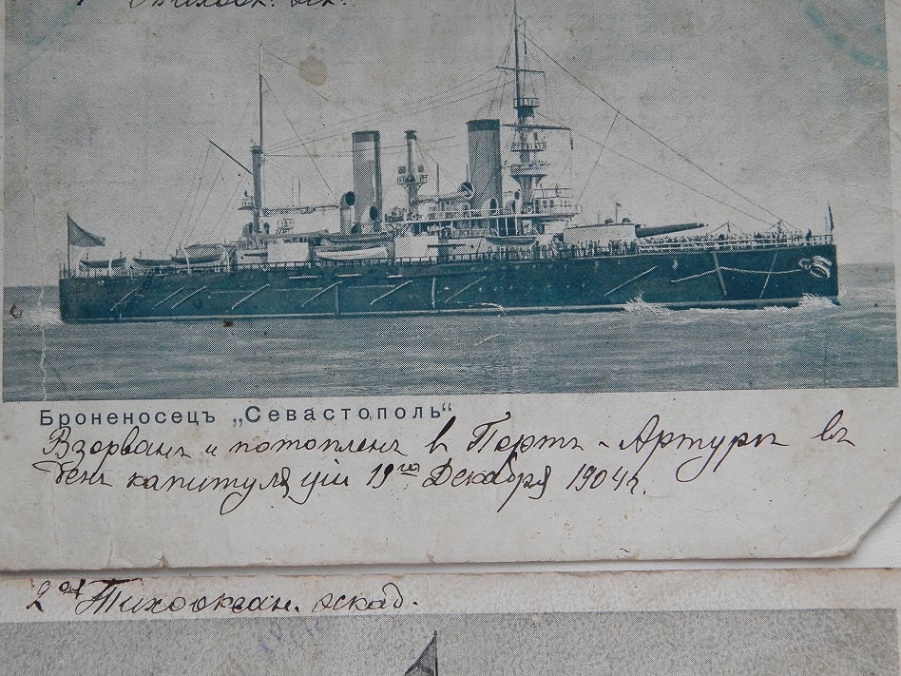 Броненосецъ „Севастополь“
Взорванъ и потопленъ в Портъ-Артурѣ въ
день капитуляціи 19го Декабря 1904 г.
2ая Тихоокеан. эскад.